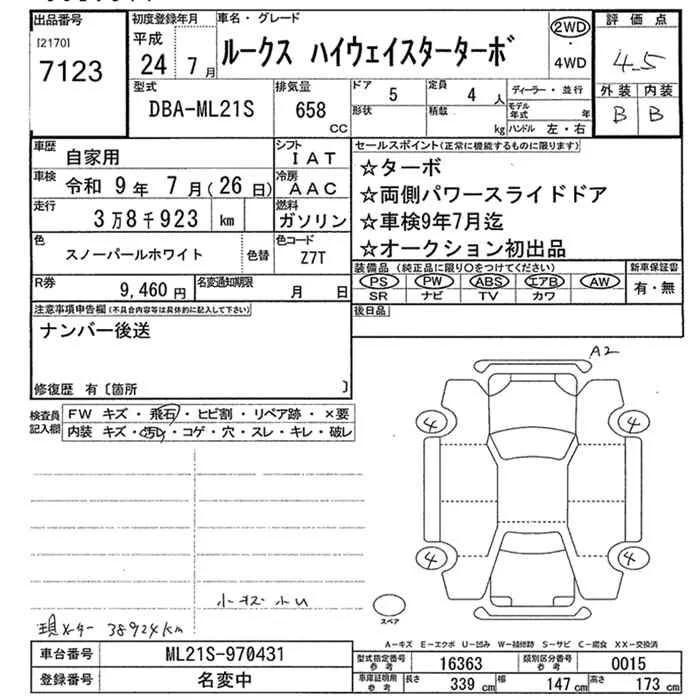 出品番号
[2170]
7123
初度登録年月
平成
24年7月
車名・グレード
ルークス ハイウェイスターターボ
2WD
・
4WD
評価点
4.5
外装 内装
B B
型式
DBA-ML21S
排気量
658
CC
ドア
5
定員
4人
形状
積載
kg
ディーラー・並行
モデル年式 年
ハンドル 左・右
車歴
自家用
シフト
IAT
車検
令和 9年 7月(26日)
冷房
AAC
走行
3万8千923 km
燃料
ガソリン
色
スノーパールホワイト
色替
色コード
Z7T
R券
9,460円
名変通知期限
月 日
セールスポイント(正常に機能するものに限ります)
☆ターボ
☆両側パワースライドドア
☆車検9年7月迄
☆オークション初出品
装備品 (純正品に限り○をつけてください)
PS PW ABS エアB AW
SR ナビ TV カワ
新車保証書
有・無
後日品
注意事項申告欄(不具合内容等は具体的に記入して下さい)
ナンバー後送
修復歴 有〔箇所 〕
検査員記入欄
FW キズ・飛石・ヒビ割・リペア跡・×要
内装 キズ・汚れ・コゲ・穴・スレ・キレ・破レ
A2
4 4
4 4
スペア
小キズ 小U
現メーター 38924km
A-キズ E-エクボ U-凹み W-補修跡 S-サビ C-腐食 XX-交換済
車台番号
ML21S-970431
登録番号
名変中
型式指定番号
参考
16363
類別区分番号
参考
0015
車庫証明用
参考
長さ 339 cm
幅 147 cm
高さ 173 cm